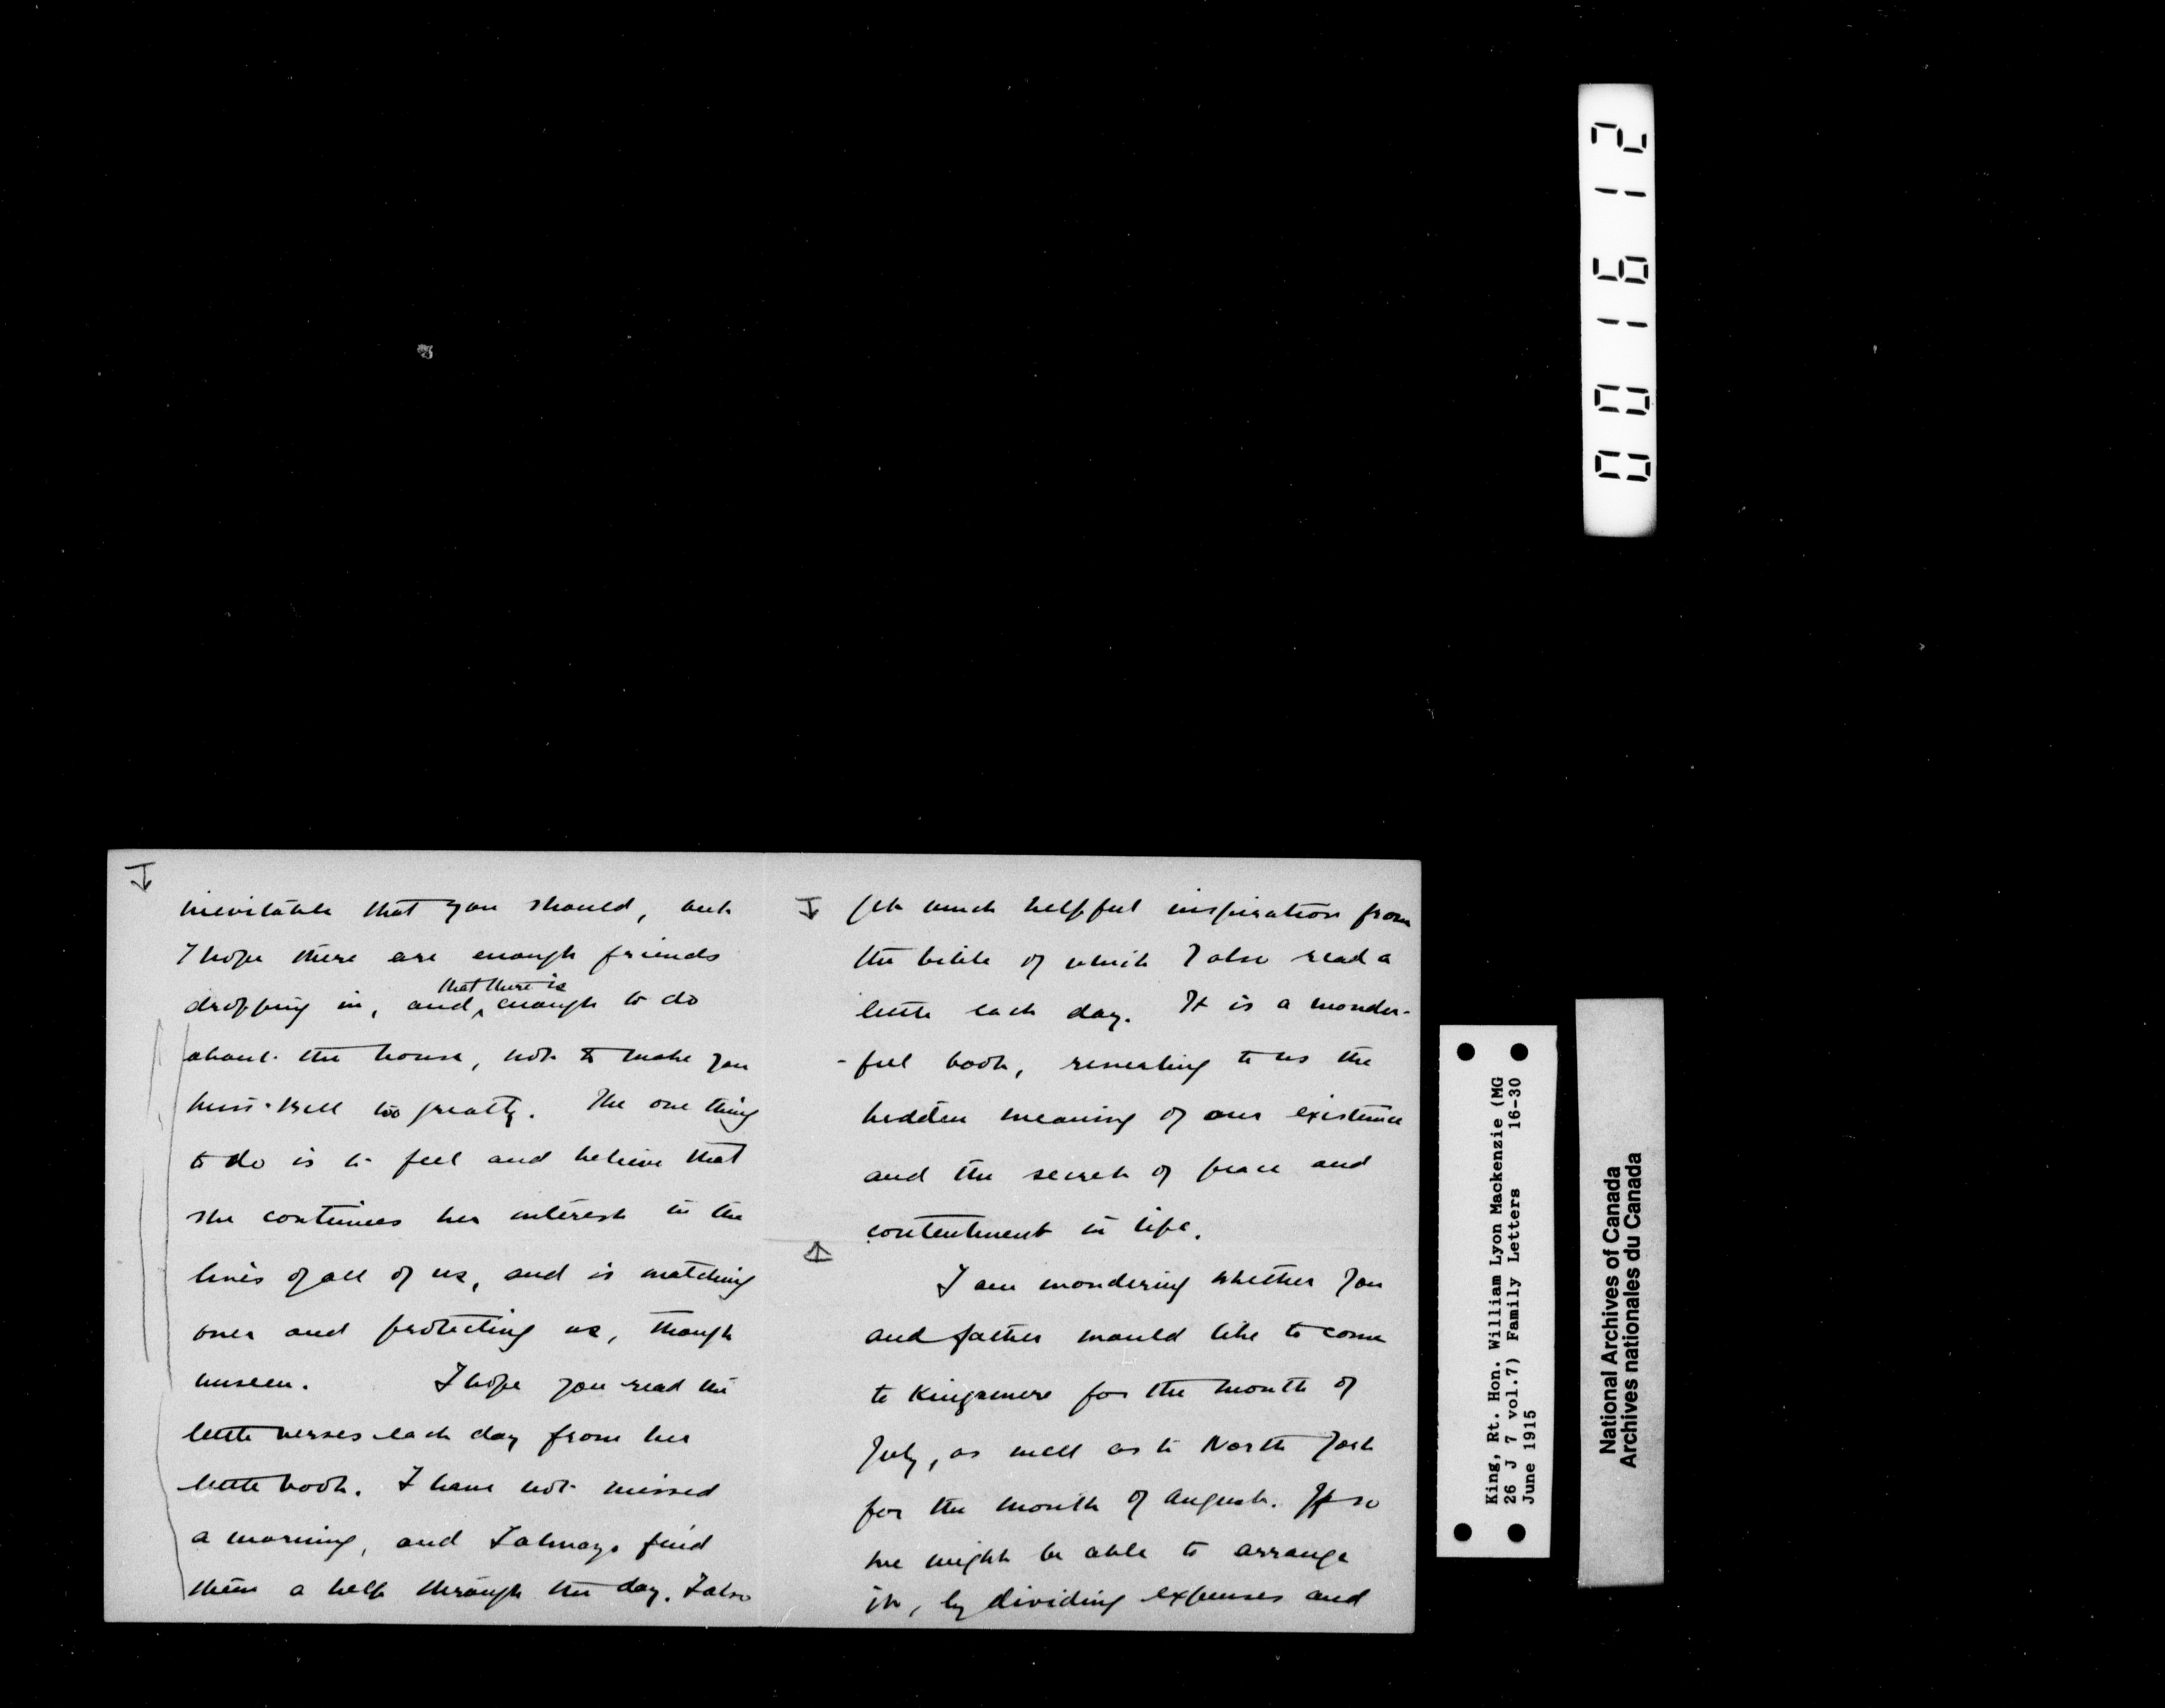 inevitable that you should, but
I hope there are enough friends
that there is
dropping in, and ^ enough to do
about the house, not to make you
miss Bell too greatly. The one thing
to do is to feel and believe that
she continues her interest in the
lives of all of us, and is watching
over and protecting us, though
unseen. I hope you read the
little verses each day from her
little book. I have not missed
a morning, and I always find
them a help through the day. I also
get much helpful inspiration from
the bible of which I also read a
little each day. It is a wonder-
-ful book, revealing to us the
hidden meaning of our existence
and the secret of peace and
contentment in life.
I am wondering whether you
and father would like to come
to Kingsmere for the month of
July, as well as to North York
for the month of August. If so
we might be able to arrange
it, by dividing expenses and
001612
King, Rt. Hon. William Lyon Mackenzie (MG
26 J 7 vol.7) Family Letters 16-30
June 1915
National Archives of Canada
Archives nationales du Canada